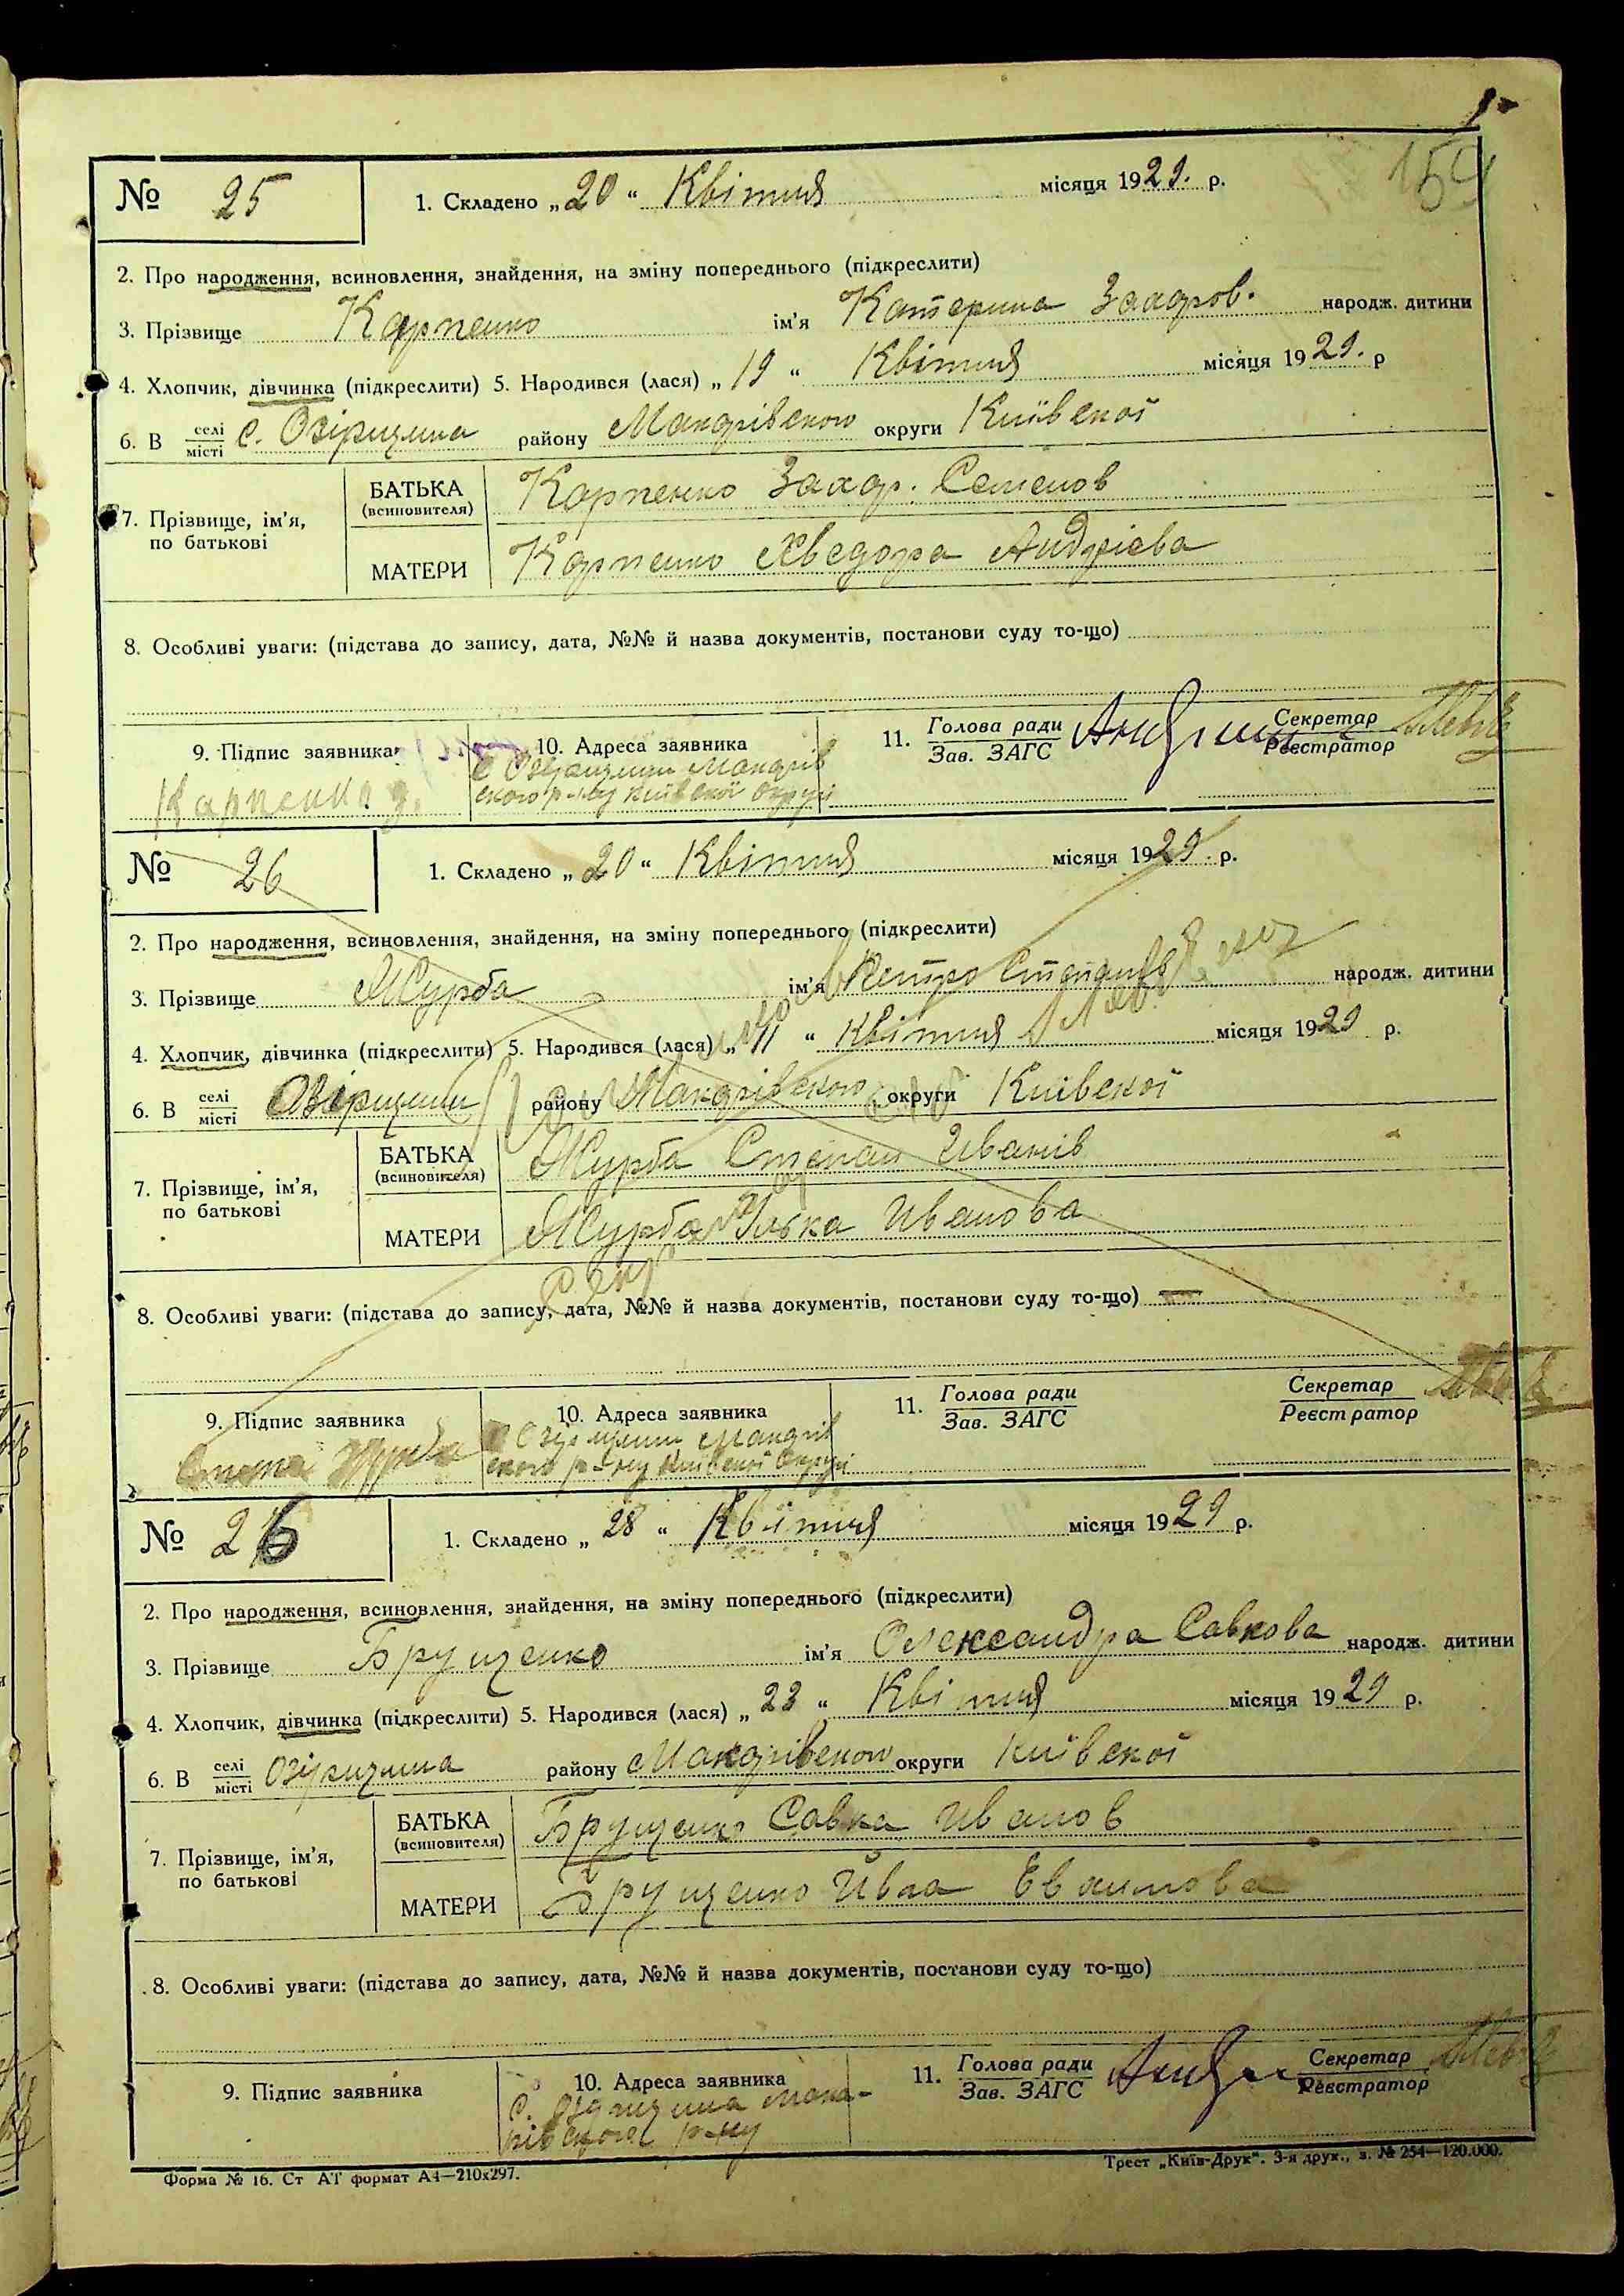 159
№ 25
1. Складено „20“ Квітня місяця 1929. р.
2. Про народження, всиновлення, знайдення, на зміну попереднього (підкреслити)
3. Прізвище Карпенко ім’я Катерина Захаров. народж. дитини
4. Хлопчик, дівчинка (підкреслити) 5. Народився (лася) „19“ Квітня місяця 1929. р
6. В селі місті с. Озірщина району Макарівского округи Київскої
7. Прізвище, ім’я, по батькові
БАТЬКА (всиновителя) Карпенко Захар. Семенов
МАТЕРИ Карпенко Хведора Андрієва
8. Особливі уваги: (підстава до запису, дата, №№ й назва документів, постанови суду то-що)
9. Підпис заявника
Карпенко З.
10. Адреса заявника
с Озірщини Макарів
ского р-ну Київскої Округи
11. Голова ради Зав. ЗАГС
Секретар Реєстратор
№ 26
1. Складено „20“ Квітня місяця 1929. р.
2. Про народження, всиновлення, знайдення, на зміну попереднього (підкреслити)
3. Прізвище Журба ім’я Петро народж. дитини
4. Хлопчик, дівчинка (підкреслити) 5. Народився (лася) „11“ Квітня місяця 1929 р.
6. В селі місті Озірщини району Макарівского округи Київскої
7. Прізвище, ім’я, по батькові
БАТЬКА (всиновителя) Журба Степан Иванів
МАТЕРИ Журба Иванова
8. Особливі уваги: (підстава до запису, дата, №№ й назва документів, постанови суду то-що) —
9. Підпис заявника
Журба
10. Адреса заявника
с Озірщини Макарів
ского р-ну Київскої Округи
11. Голова ради Зав. ЗАГС
Секретар Реєстратор
№ 26
1. Складено „28“ Квітня місяця 1929 р.
2. Про народження, всиновлення, знайдення, на зміну попереднього (підкреслити)
3. Прізвище Брущенко ім’я Олександра Савкова народж. дитини
4. Хлопчик, дівчинка (підкреслити) 5. Народився (лася) „23“ Квітня місяця 1929 р.
6. В селі місті Озірщина району Макарівского округи Київскої
7. Прізвище, ім’я, по батькові
БАТЬКА (всиновителя) Брущенко Савка Иванов
МАТЕРИ Брущенко Ївга
8. Особливі уваги: (підстава до запису, дата, №№ й назва документів, постанови суду то-що)
9. Підпис заявника
10. Адреса заявника
с. Озірщина Мака-
рівского р-ну
11. Голова ради Зав. ЗАГС
Секретар Реєстратор
Форма № 16. Ст АТ формат А4—210х297.
Трест „Київ-Друк“. 3-я друк., з. № 254—120.000.